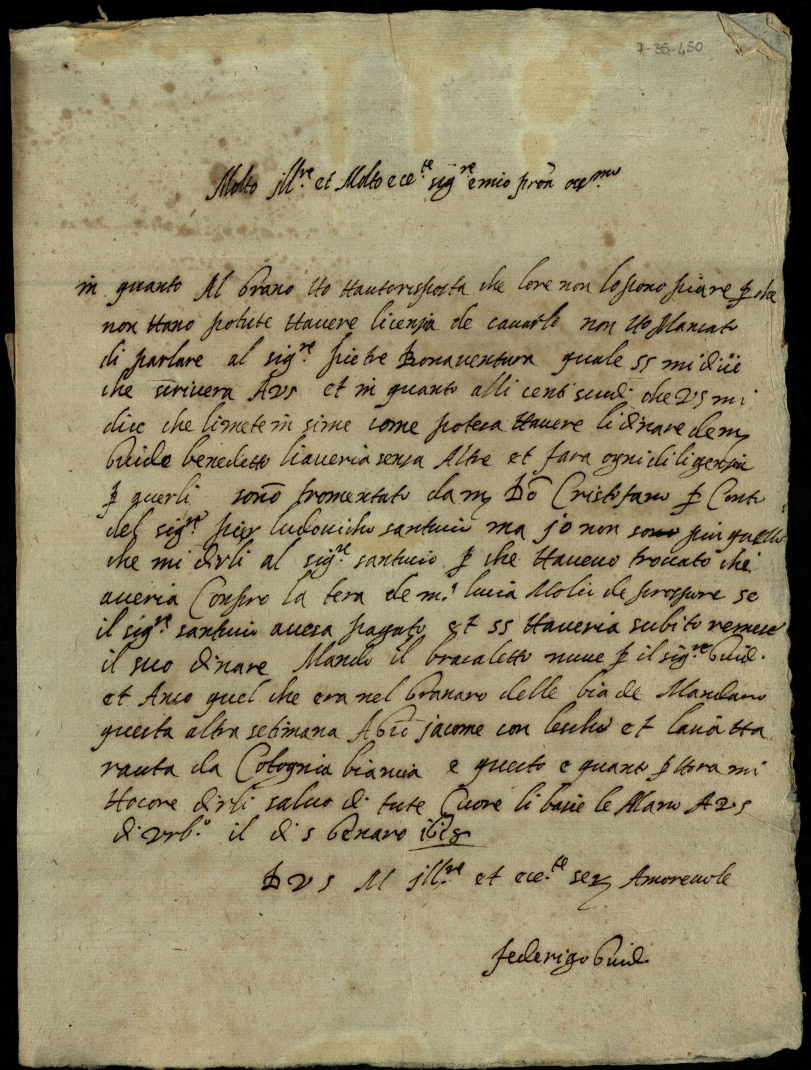 7-35-450
Molto Ill.re et Molto ece.te sig.re e mio pron oss.mo
in quanto Al Grano Ho Hauto risposta che lore non lo pono piare p che
non Hano potute Havere licenzia de cavarlo non Ho Mancato
di parlare al sig.re pietre Bonaventura quale ss mi dice
che scrivera A VS et in quanto alli centi scudi che VS mi
dice che li mete in sime come poteva Havere li dinare de m
Guido benedetto li averia senza Altre et fara ogni diligenzia
p querli sono tromentato da m Do Cristofano p Conto
del sig.re pier ludovicho santucio ma jo non so piu quello
che mi dirli al sig.re santucio p che Havevo trovato chi
averia Conpro la tera de m.a lucia de se
il sig.re santucio avesa pagato et ss Haveria subito remese
il suo dinare Mando il bracaletto nuve p il sig.re Guid.
et Anco quel che era nel Granaro delle bia de Mandaro
questa altra setimana A jacome con lescho et
rauta da Cotognia biancia e questo e quanto p Hora mi
Hocore dirli salvo di tute Cuore li basie le Mano A VS
di Urb.o il di 5 Genaro 1618
D VS M Ill.re et ece.te ser Amorevole
federigo Guid.